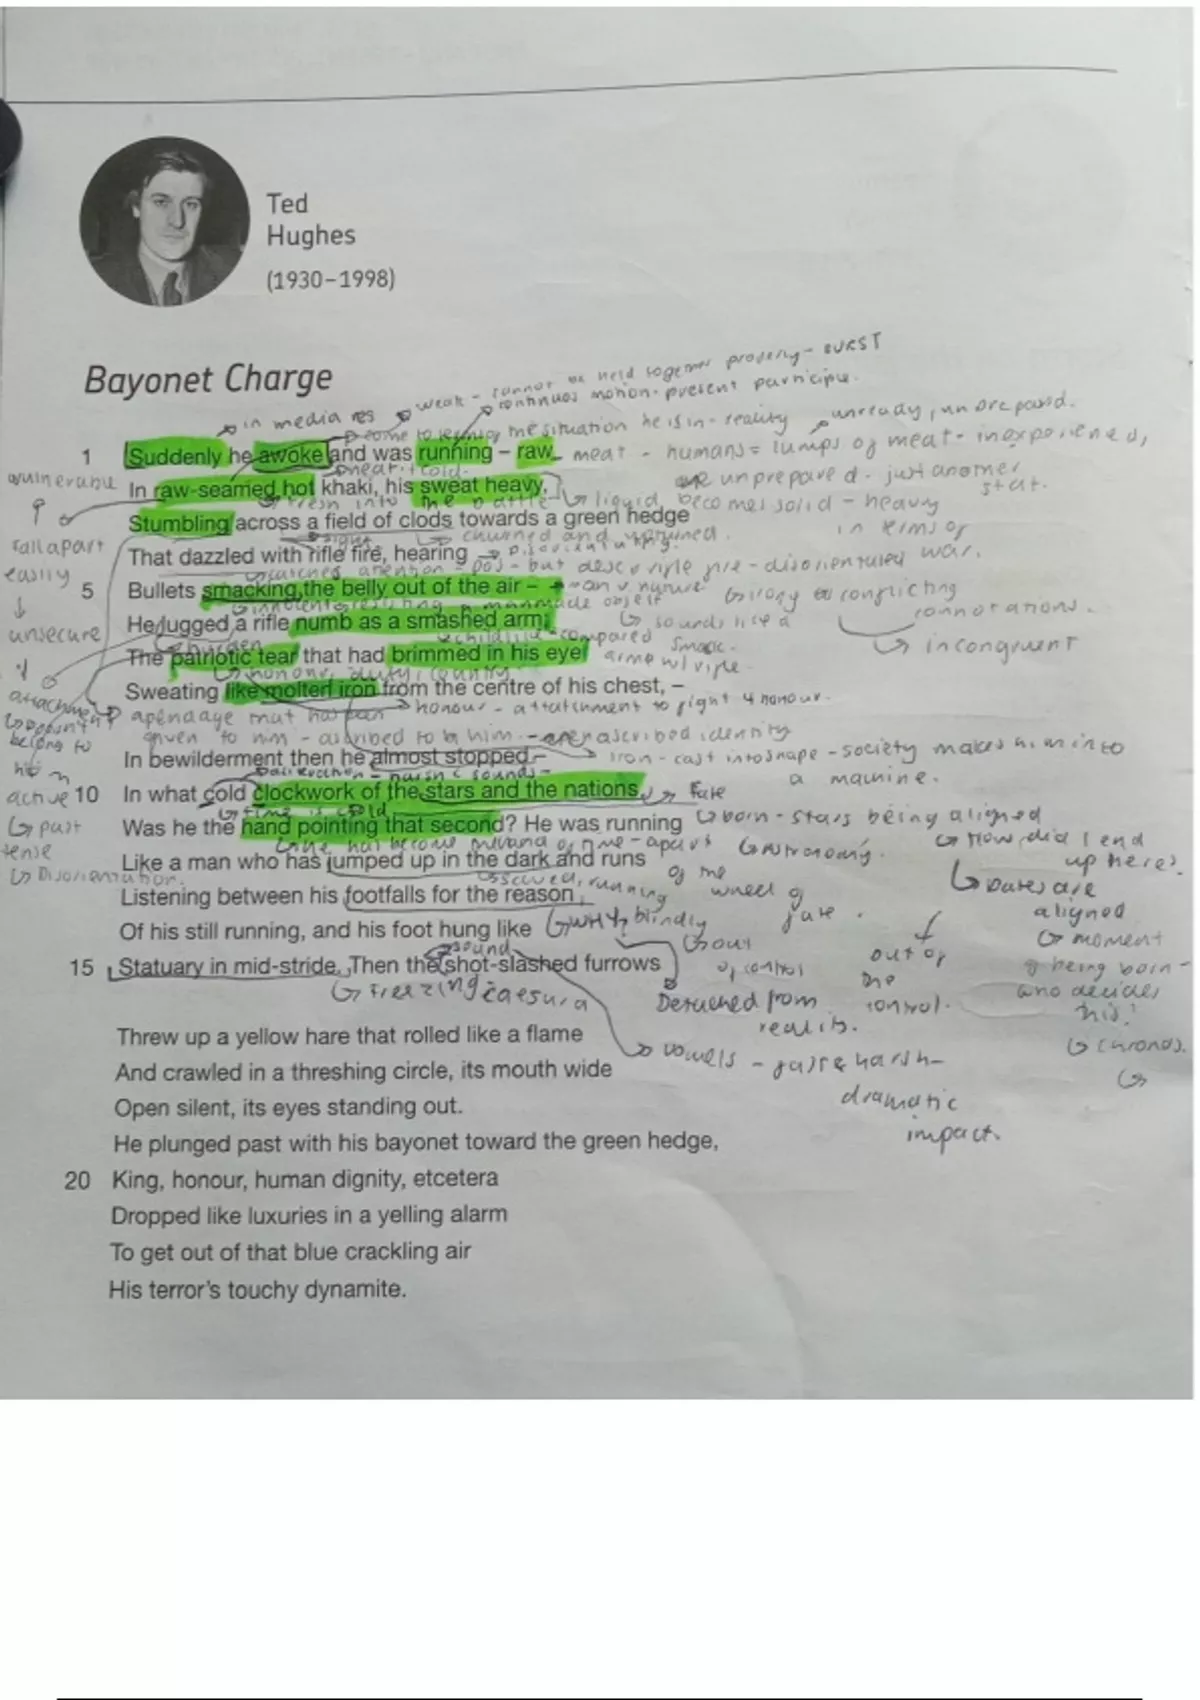 Ted
Hughes
(1930–1998)
Bayonet Charge
cannot be held together properly - BURST
in media res weak - continuous motion - present participle.
come to terms of the situation he is in - reality unready, unprepared.
1 Suddenly he awoke and was running – raw meat - humans = lumps of meat - inexperienced,
vulnerable unprepared. just another stat.
In raw-seamed hot khaki, his sweat heavy,
fresh into the battle liquid becomes solid - heavy
Stumbling across a field of clods towards a green hedge in terms of war.
fall apart easily churned and
That dazzled with rifle fire, hearing
catches attention - pos - but desc rifle fire - disorientated
5 Bullets smacking the belly out of the air – man v nature irony conflicting connotations.
manmade object
unsecure
He lugged a rifle numb as a smashed arm; sounds like a smack.
incongruent
burden childlike - compared arm w/ rifle.
The patriotic tear that had brimmed in his eye
honour, duty, country
Sweating like molten iron from the centre of his chest, –
honour - attatchment to fight 4 honour.
attachment doesn't belong to him
apendage that has been given to him - ascribed to him - ascribed identity
In bewilderment then he almost stopped – iron - cast into shape - society makes him into a machine.
harsh c sounds
active past tense Disorientation.
10 In what cold clockwork of the stars and the nations Fate
time is cold
Was he the hand pointing that second? He was running born - stars being aligned
he has become the hand of time - apart of the wheel of fate. Astronomy. How did I end up here?
Like a man who has jumped up in the dark and runs
scared, running Dates are aligned
Listening between his footfalls for the reason
Of his still running, and his foot hung like WHY, blindly
out of control out of the control.
moment of being born - who decides this?
chronos.
sound
15 Statuary in mid-stride. Then the shot-slashed furrows
Freezing caesura Detached from reality.
vowels - fast & harsh - dramatic impact.
Threw up a yellow hare that rolled like a flame
And crawled in a threshing circle, its mouth wide
Open silent, its eyes standing out.
He plunged past with his bayonet toward the green hedge,
20 King, honour, human dignity, etcetera
Dropped like luxuries in a yelling alarm
To get out of that blue crackling air
His terror's touchy dynamite.